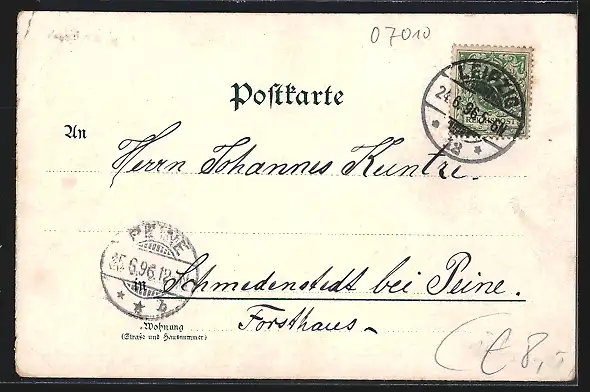 07010
Postkarte
LEIPZIG
24.6.96.
12
REICHSPOST
An
Herrn Johannes Kuntze.
PEINE
25.6.96.12
in Schmedenstedt bei Peine.
b
Forsthaus
Wohnung
(Straße und Hausnummer)
€ 8,-